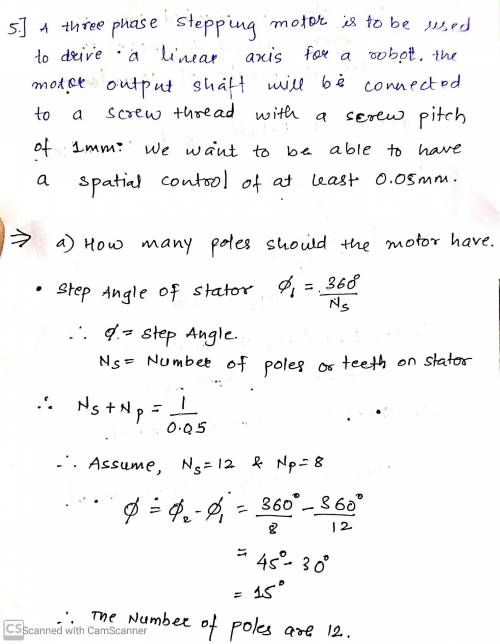 5] A three phase stepping motor is to be used
to drive a linear axis for a robot. the
motor output shaft will be connected
to a screw thread with a screw pitch
of 1mm. We want to be able to have
a spatial control of at least 0.05mm.
⇒ a) How many poles should the motor have.
• Step Angle of stator ϕ₁ = 360°/Ns
∴ ϕ = Step Angle.
Ns = Number of poles or teeth on stator
∴ Ns + Np = 1/0.05
∴ Assume, Ns = 12 & Np = 8
ϕ = ϕ₂ - ϕ₁ = 360°/8 - 360°/12
= 45° - 30°
= 15°
∴ The Number of poles are 12.
CS Scanned with CamScanner